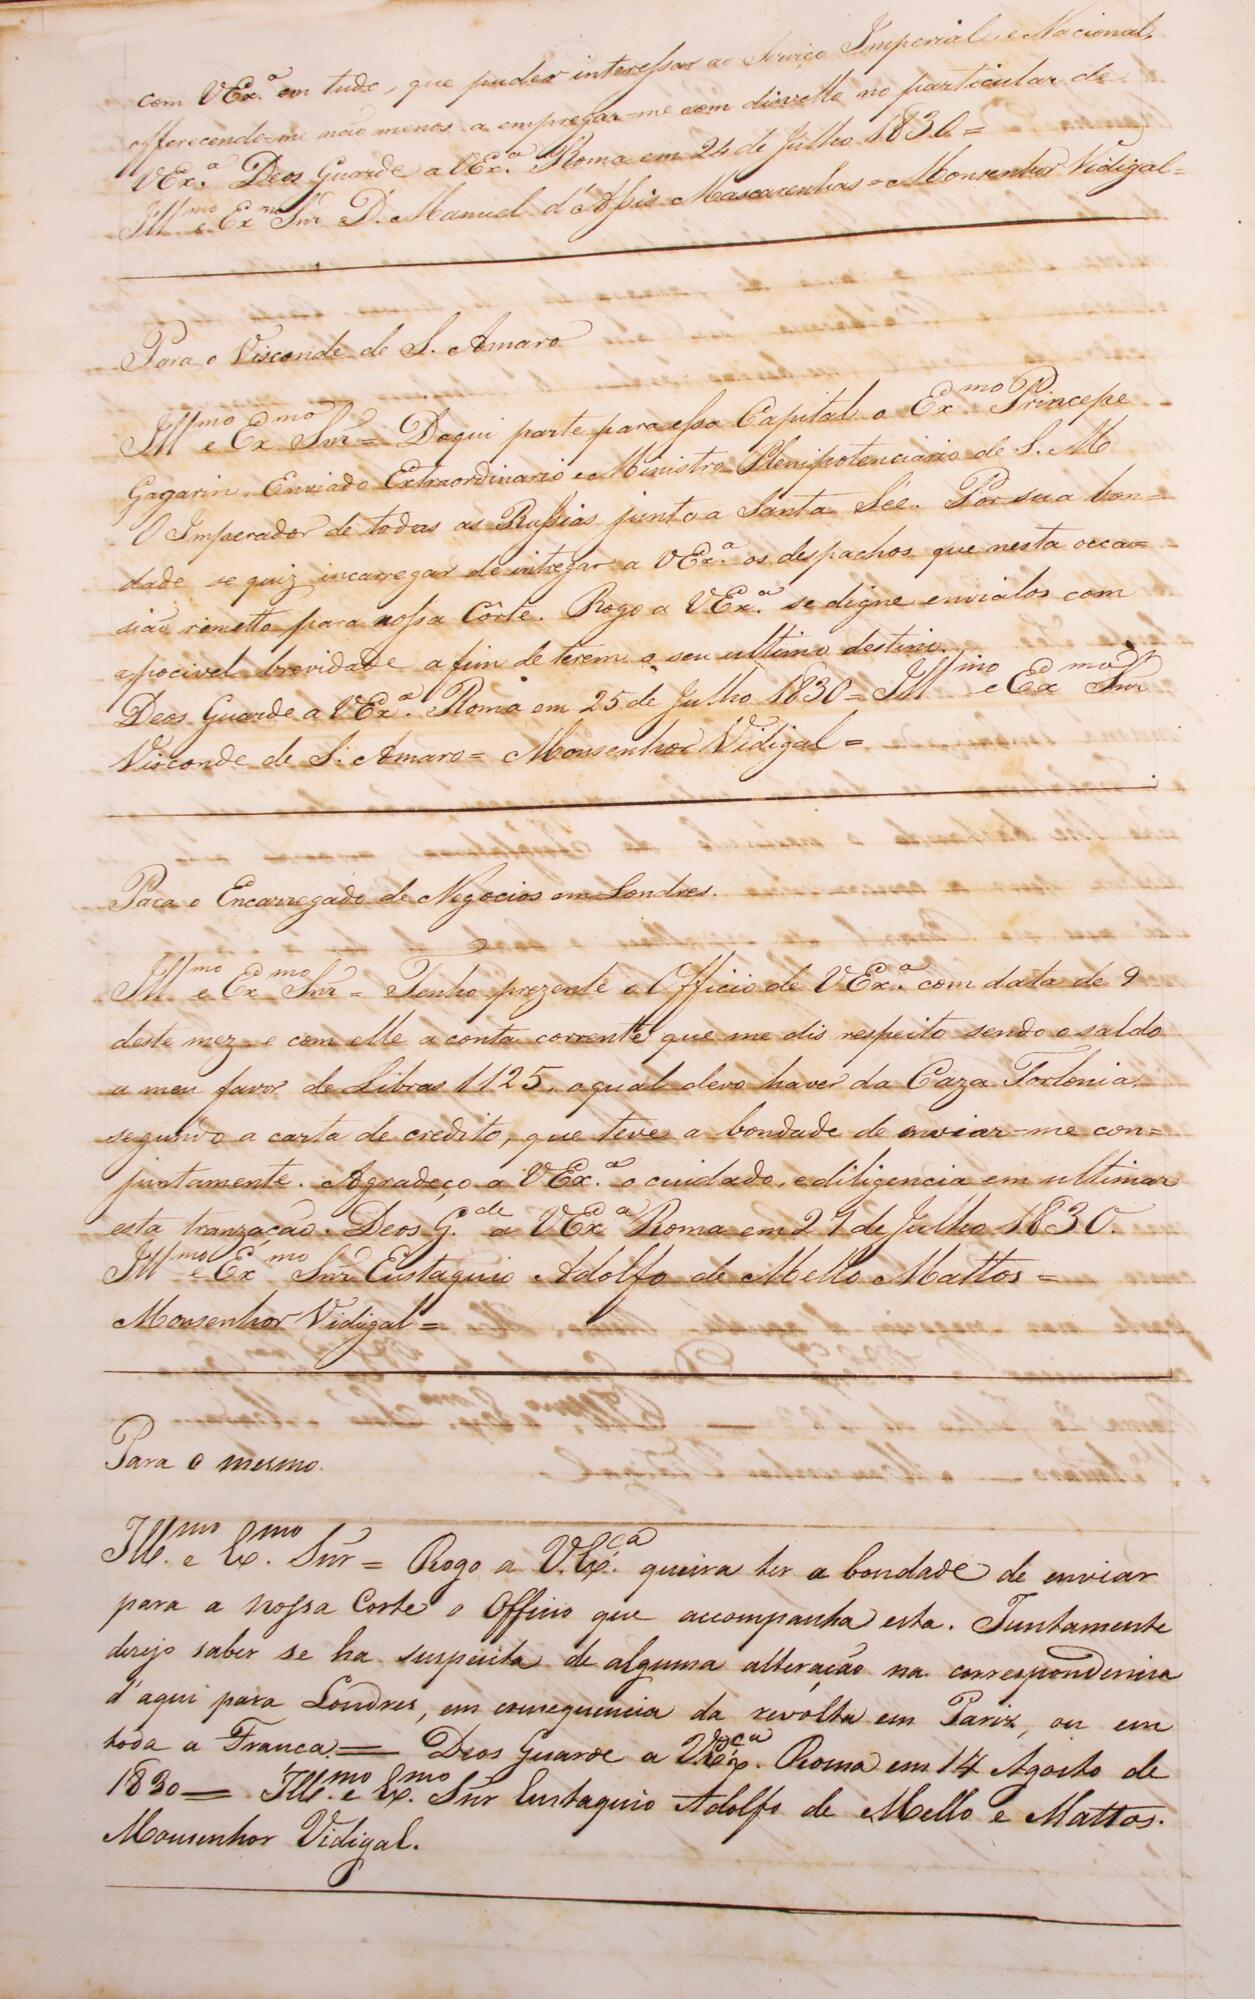 com VEx.ª em tudo, que puder interessar ao Serviço Imperial e Nacional,
offerecendo-me não menos a empregar-me com disvello no particular de
VEx.ª Deos Guarde a VEx.ª Roma em 24 de Julho 1830=
Ill.mo e Ex.mo Snr D. Manuel d'Assis Mascarenhas = Monsenhor Vidigal=
Para o Visconde de S. Amaro
Ill.mo e Ex.mo Snr = Daqui parte para essa Capital o Ex.mo Principe
Gagarin, Enviado Extraordinario e Ministro Plenipotenciario de S. M
O Imperador de todas as Russias junto a Santa Sée. Por sua bon=
dade se quiz incarregar de intregar a VEx.ª os despachos que nesta occa=
sião remetto para nossa Côrte. Rogo a VEx.ª se digne envialos com
a pocivel brevidade a fim de terem o seu ultimo destino.
Deos Guarde a VEx.ª Roma em 25 de Julho 1830= Ill.mo e Ex.mo Snr
Visconde de S. Amaro= Monsenhor Vidigal=
Para o Encarregado de Negocios em Londres.
Ill.mo e Ex.mo Snr = Tenho prezente o Officio de VEx.ª com data de 9
deste mez, e com elle a conta corrente que me dis respeito sendo o saldo
a meu favor de Libras 1125, o qual devo haver da Caza Torlonia,
segundo a carta de credito, que teve a bondade de enviar-me con=
juntamente. Agradeço a VEx.ª o cuidado, e diligencia em ultimar
esta tranzação. Deos G.de a VEx.ª Roma em 27 de Julho 1830.
Ill.mo e Ex.mo Snr Eustaquio Adolfo de Mello Mattos =
Monsenhor Vidigal=
Para o mesmo.
Ill.mo e Ex.mo Snr = Rogo a V.Ex.cia queira ter a bondade de enviar
para a nossa Corte o Officio que accompanha esta. Juntamente
dezejo saber se ha suspeita de alguma alteração na correspondencia
d'aqui para Londres, em consequencia da revolta em Pariz, ou em
toda a Franca.= Deos Guarde a V.Ex.cia Roma em 14 Agosto de
1830= Ill.mo e Ex.mo Snr Eustaquio Adolfo de Mello e Mattos.
Monsenhor Vidigal.